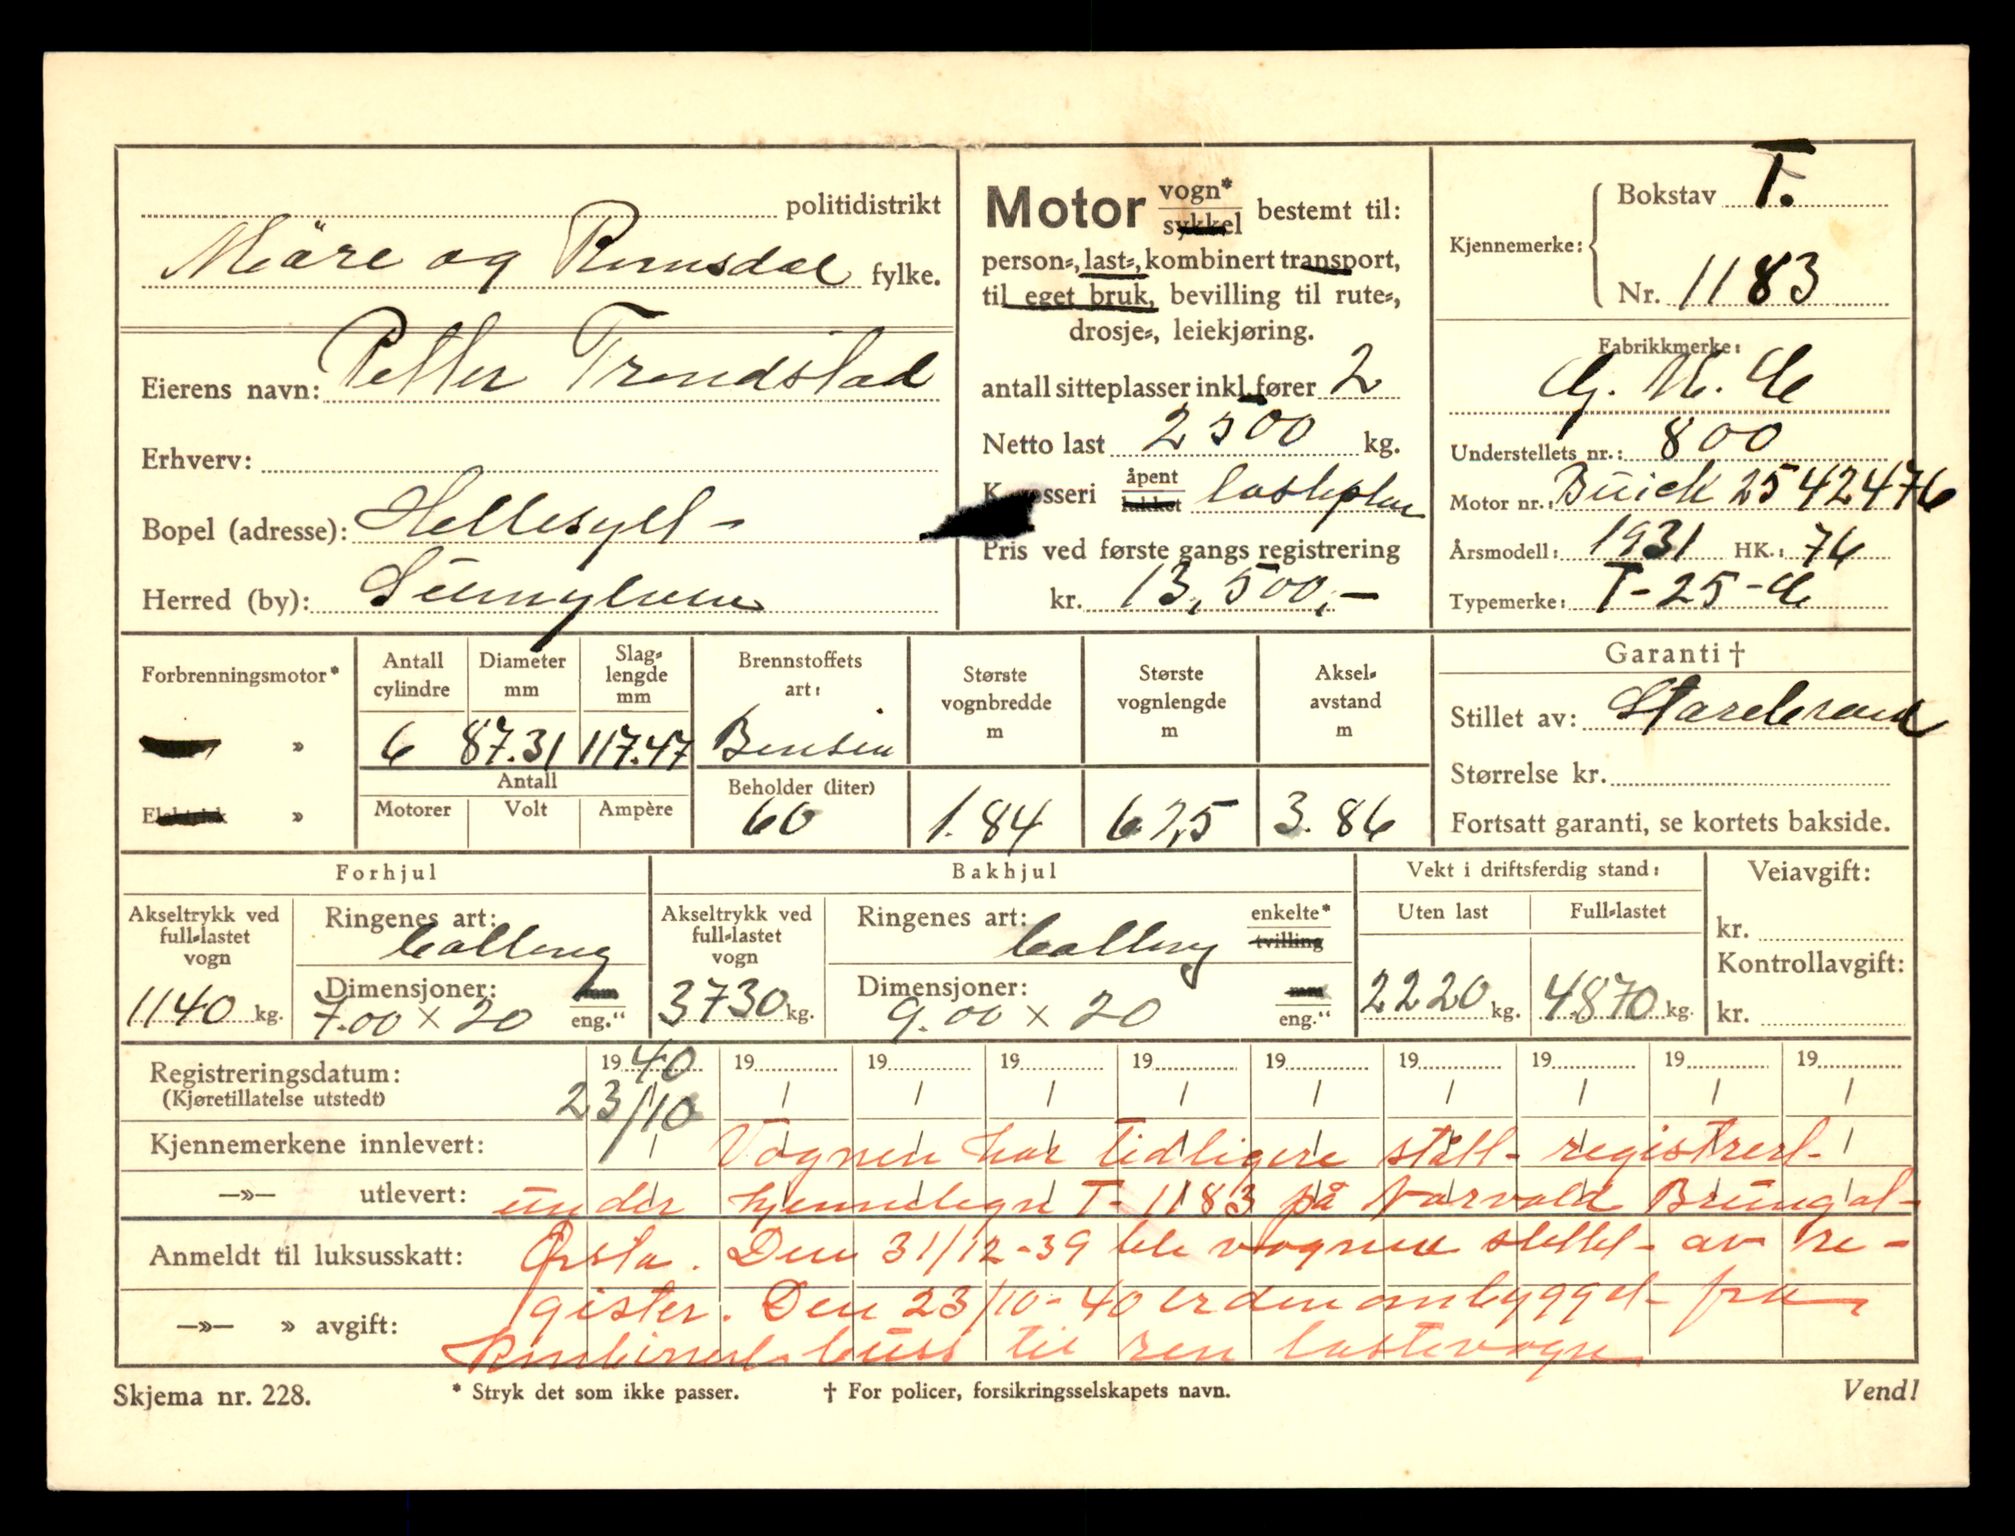 politidistrikt
Möre og Romsdal fylke.
Eierens navn: Petter Trondstad
Erhverv:
Bopel (adresse): Hellesylt
Herred (by): Sunnylven
Motor vogn* sykkel bestemt til:
person-, last-, kombinert transport,
til eget bruk, bevilling til rute-,
drosje-, leiekjøring.
antall sitteplasser inkl. fører 2
Netto last 2500 kg.
Karosseri åpent lukket lasteplan
Pris ved første gangs registrering
kr. 13,500,-
Kjennemerke: Bokstav T.
Nr. 1183
Fabrikkmerke:
G. M. C
Understellets nr.: 800
Motor nr.: Buick 2542476
Årsmodell: 1931 HK.: 76
Typemerke: T-25-C
Garanti †
Stillet av: Storebrand
Størrelse kr.
Fortsatt garanti, se kortets bakside.
Forbrenningsmotor*
»
Elektrisk »
Antall cylindre
6
Diameter mm
87.31
Slag-lengde mm
117.47
Antall
Motorer Volt Ampère
Brennstoffets art:
Bensin
Beholder (liter)
60
Største vognbredde m
1.84
Største vognlengde m
6.25
Aksel-avstand m
3.86
Forhjul
Akseltrykk ved full-lastet vogn
1140 kg.
Ringenes art: Ballong
Dimensjoner: mm
7.00 × 20 eng."
Bakhjul
Akseltrykk ved full-lastet vogn
3730 kg.
Ringenes art: Ballong enkelte* tvilling
Dimensjoner: mm
9.00 × 20 eng."
Vekt i driftsferdig stand:
Uten last Full-lastet
2220 kg. 4870 kg.
Veiavgift:
kr.
Kontrollavgift:
kr.
Registreringsdatum:
(Kjøretillatelse utstedt)
1940 19 19 19 19 19 19 19 19 19
23/10 / / / / / / / / /
Kjennemerkene innlevert:
Vognen har tidligere stått registrert
—»— utlevert:
under kjennetegn T-1183 på Norvald Brungot
Anmeldt til luksusskatt:
Ørsta. Den 31/12-39 ble vognen slettet av re-
—»— » avgift:
gister. Den 23/10-40 er den ombygget fra
kombinert buss til ren lastevogn
Skjema nr. 228.
* Stryk det som ikke passer.
† For policer, forsikringsselskapets navn.
Vend!